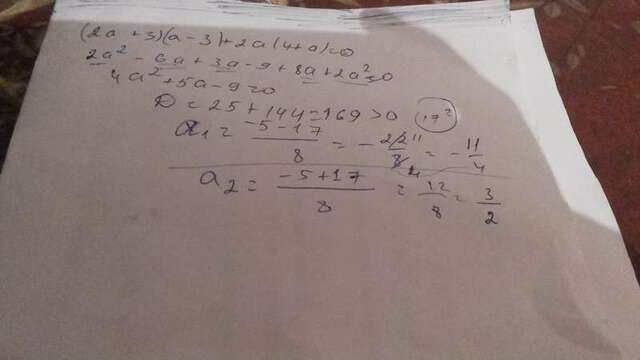 (2a + 3)(a - 3) + 2a(4 + a) = 0
2a² - 6a + 3a - 9 + 8a + 2a² = 0
4a² + 5a - 9 = 0
D = 25 + 144 = 169 > 0 17²
a₁ = (-5 - 17)/8 = - 22/8 11/4 = - 11/4
a₂ = (-5 + 17)/8 = 12/8 = 3/2